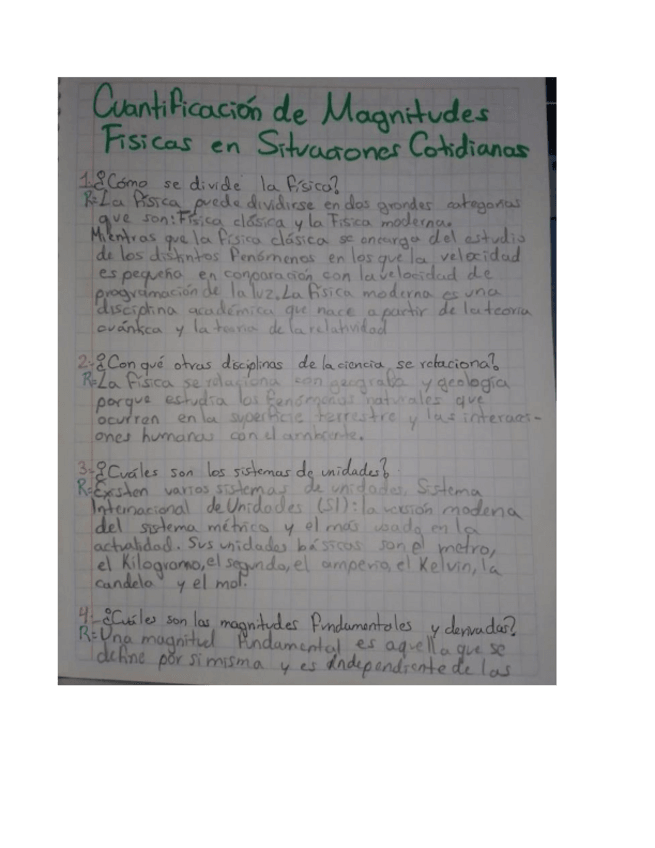 Cuantificación de Magnitudes
Físicas en Situaciones Cotidianas
1-¿Cómo se divide la física?
R=La física puede dividirse en dos grandes categorias
que son: Física clásica y la Fisica moderna.
Mientras que la física clásica se encarga del estudio
de los distintos fenómenos en los que la velocidad
es pequeña en comparación con la velocidad de
programación de la luz. La física moderna es una
disciplina académica que nace a partir de la teoría
cuántica y la teoria de la relatividad
2-¿Con qué otras disciplinas de la ciencia se relaciona?
R=La física se relaciona con geografia y geología
porque estudia los fenómenos naturales que
ocurren en la superficie terrestre y las interacci-
ones humanas con el ambiente.
3-¿Cuáles son los sistemas de unidades?
R=Existen varios sistemas de unidades. Sistema
Internacional de Unidades (SI): la versión moderna
del sistema métrico y el más usado en la
actualidad. Sus unidades básicas son el metro,
el Kilogramo, el segundo, el amperio, el Kelvin, la
candela y el mol.
4-¿Cuáles son las magnitudes fundamentales y derivadas?
R=Una magnitud fundamental es aquella que se
define por si misma y es independiente de las